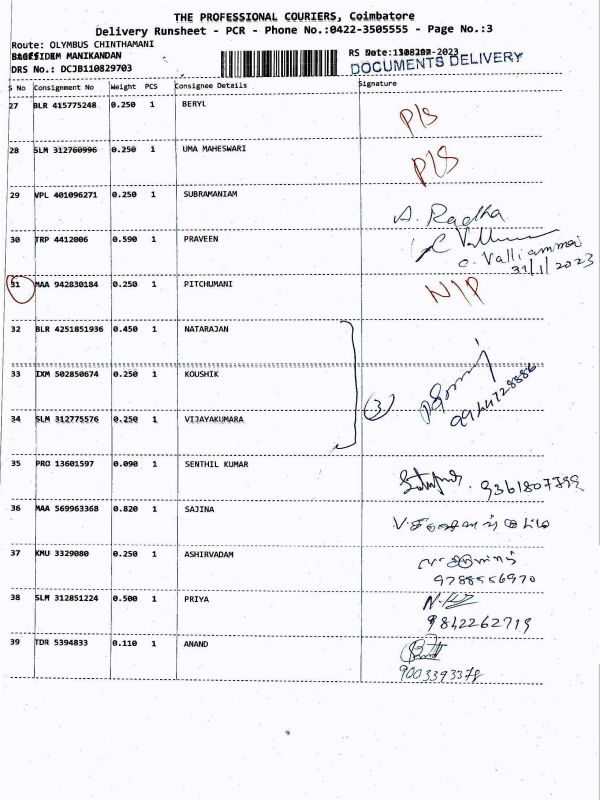 THE PROFESSIONAL COURIERS, Coimbatore
Delivery Runsheet - PCR - Phone No.:0422-3505555 - Page No.:3
Route: OLYMBUS CHINTHAMANI
MANIKANDAN
RS Date:
DRS No.: DCJB110829703
DOCUMENTS DELIVERY
S No Consignment No Weight PCS Consignee Details Signature
27 BLR 415775248 0.250 1 BERYL P/S
28 SLM 312760996 0.250 1 UMA MAHESWARI P/S
29 VPL 401096271 0.250 1 SUBRAMANIAM A. Radha
30 TRP 4412006 0.590 1 PRAVEEN
C. Valliammai
31/1/2023
31 MAA 942830184 0.250 1 PITCHUMANI N/P
32 BLR 4251851936 0.450 1 NATARAJAN
33 IXM 502850674 0.250 1 KOUSHIK
3
34 SLM 312775576 0.250 1 VIJAYAKUMARA
35 PRO 13601597 0.090 1 SENTHIL KUMAR
36 MAA 569963368 0.820 1 SAJINA
37 KMU 3329080 0.250 1 ASHIRVADAM
9788556970
38 SLM 312851224 0.500 1 PRIYA
9842262719
39 TDR 5394833 0.110 1 ANAND
9003393378